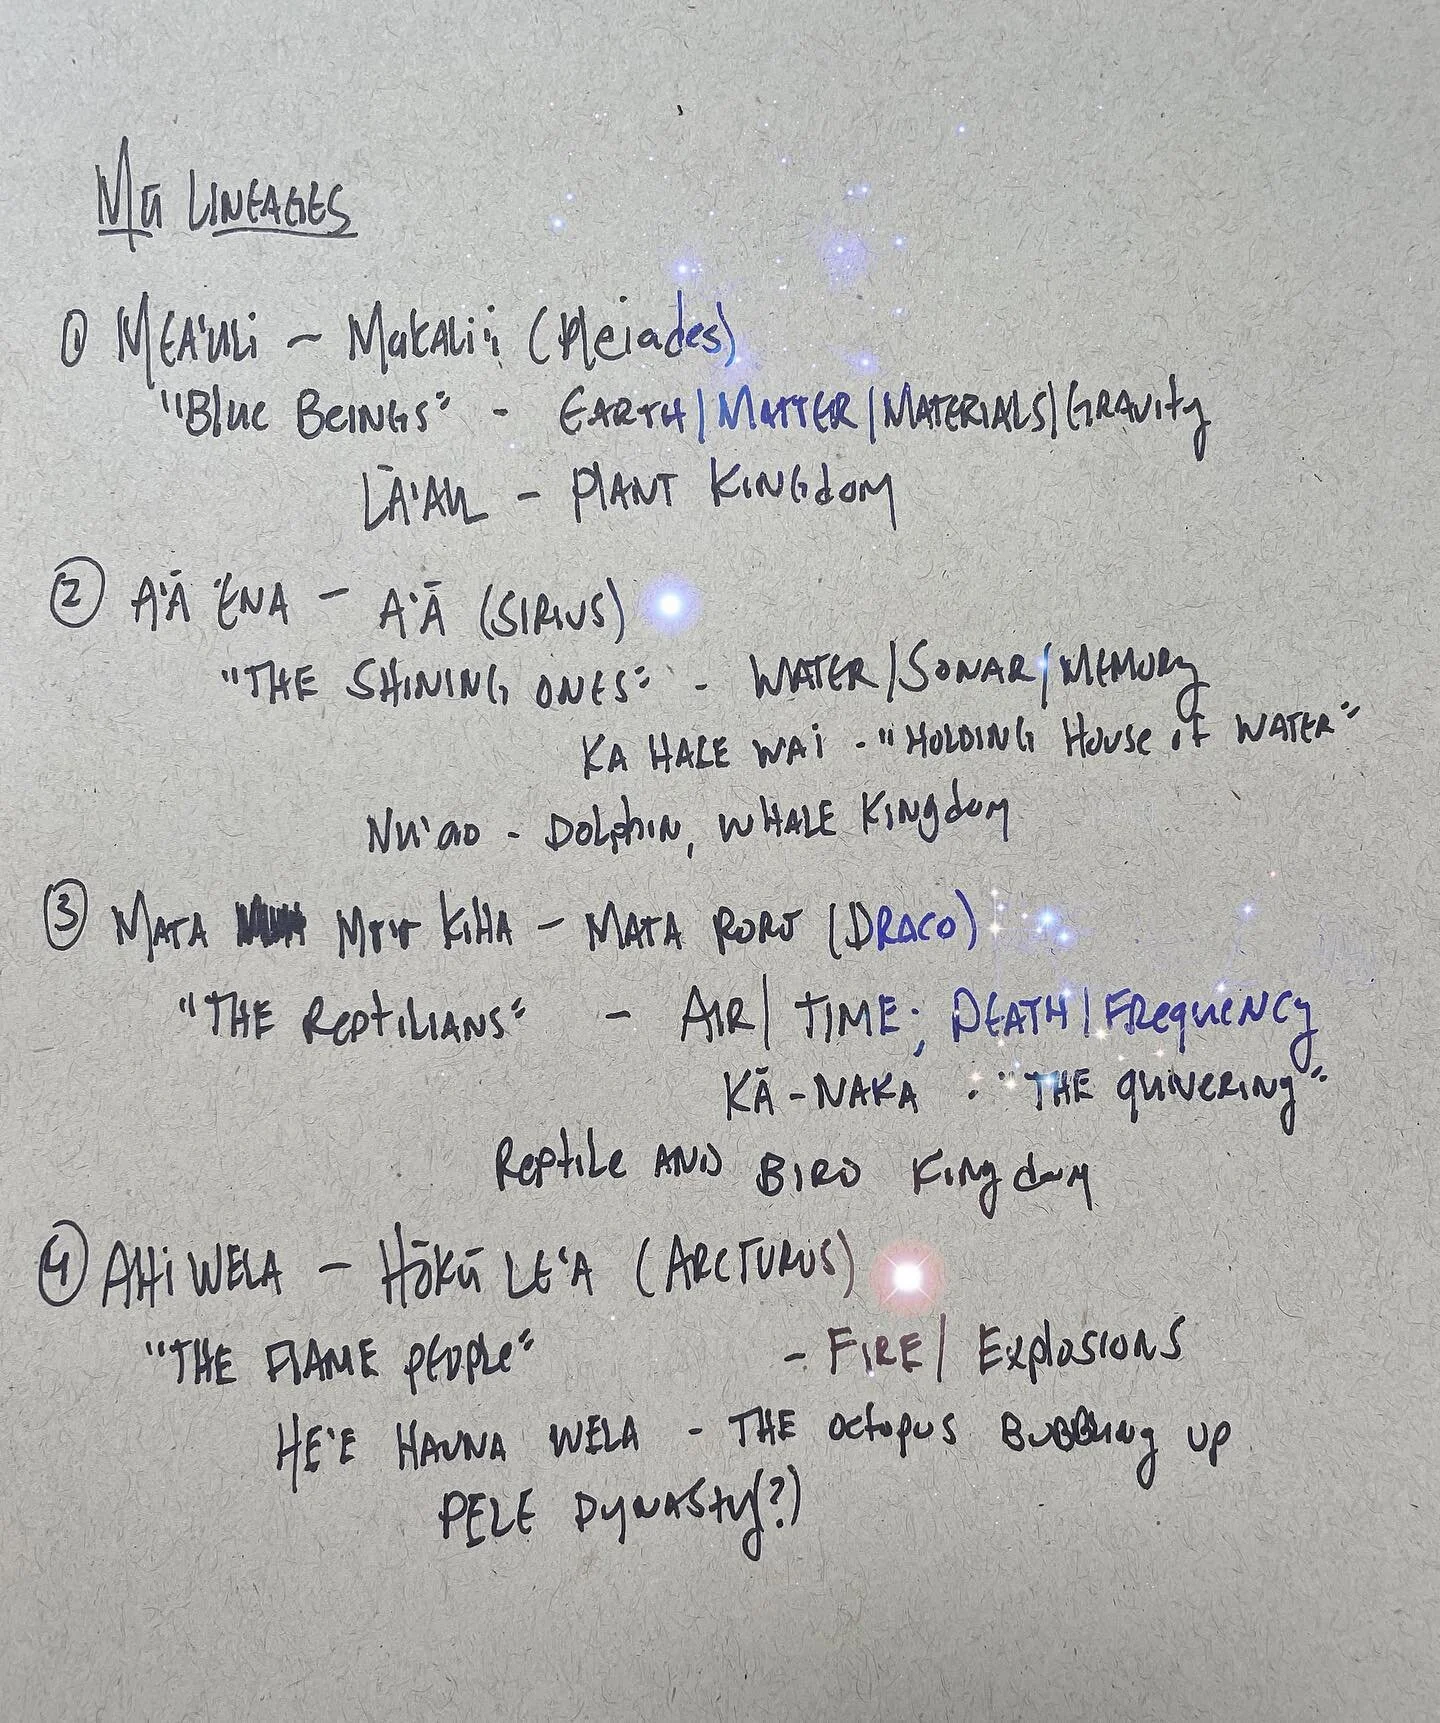 Mū LINEAGES
① MEA'ULI ~ MAKALI'I (PLEIADES)
"BLUE BEINGS" - EARTH | MATTER | MATERIALS | GRAVITY
LĀ'AU - PLANT KINGDOM
② A'Ā 'ENA - A'Ā (SIRIUS)
"THE SHINING ONES" - WATER / SONAR / MEMORY
KA HALE WAI - "HOLDING HOUSE OF WATER"
NU'AO - DOLPHIN, WHALE KINGDOM
③ MATA KIHA - MATA (DRACO)
"THE REPTILIANS" - AIR | TIME; DEATH | FREQUENCY
KĀ-NAKA - "THE QUIVERING"
REPTILE AND BIRD KINGDOM
④ AHI WELA - HŌKŪ LE'A (ARCTURUS)
"THE FLAME PEOPLE" - FIRE | EXPLOSIONS
HE'E HAUNA WELA - THE OCTOPUS BUBBLING UP
PELE DYNASTY(?)